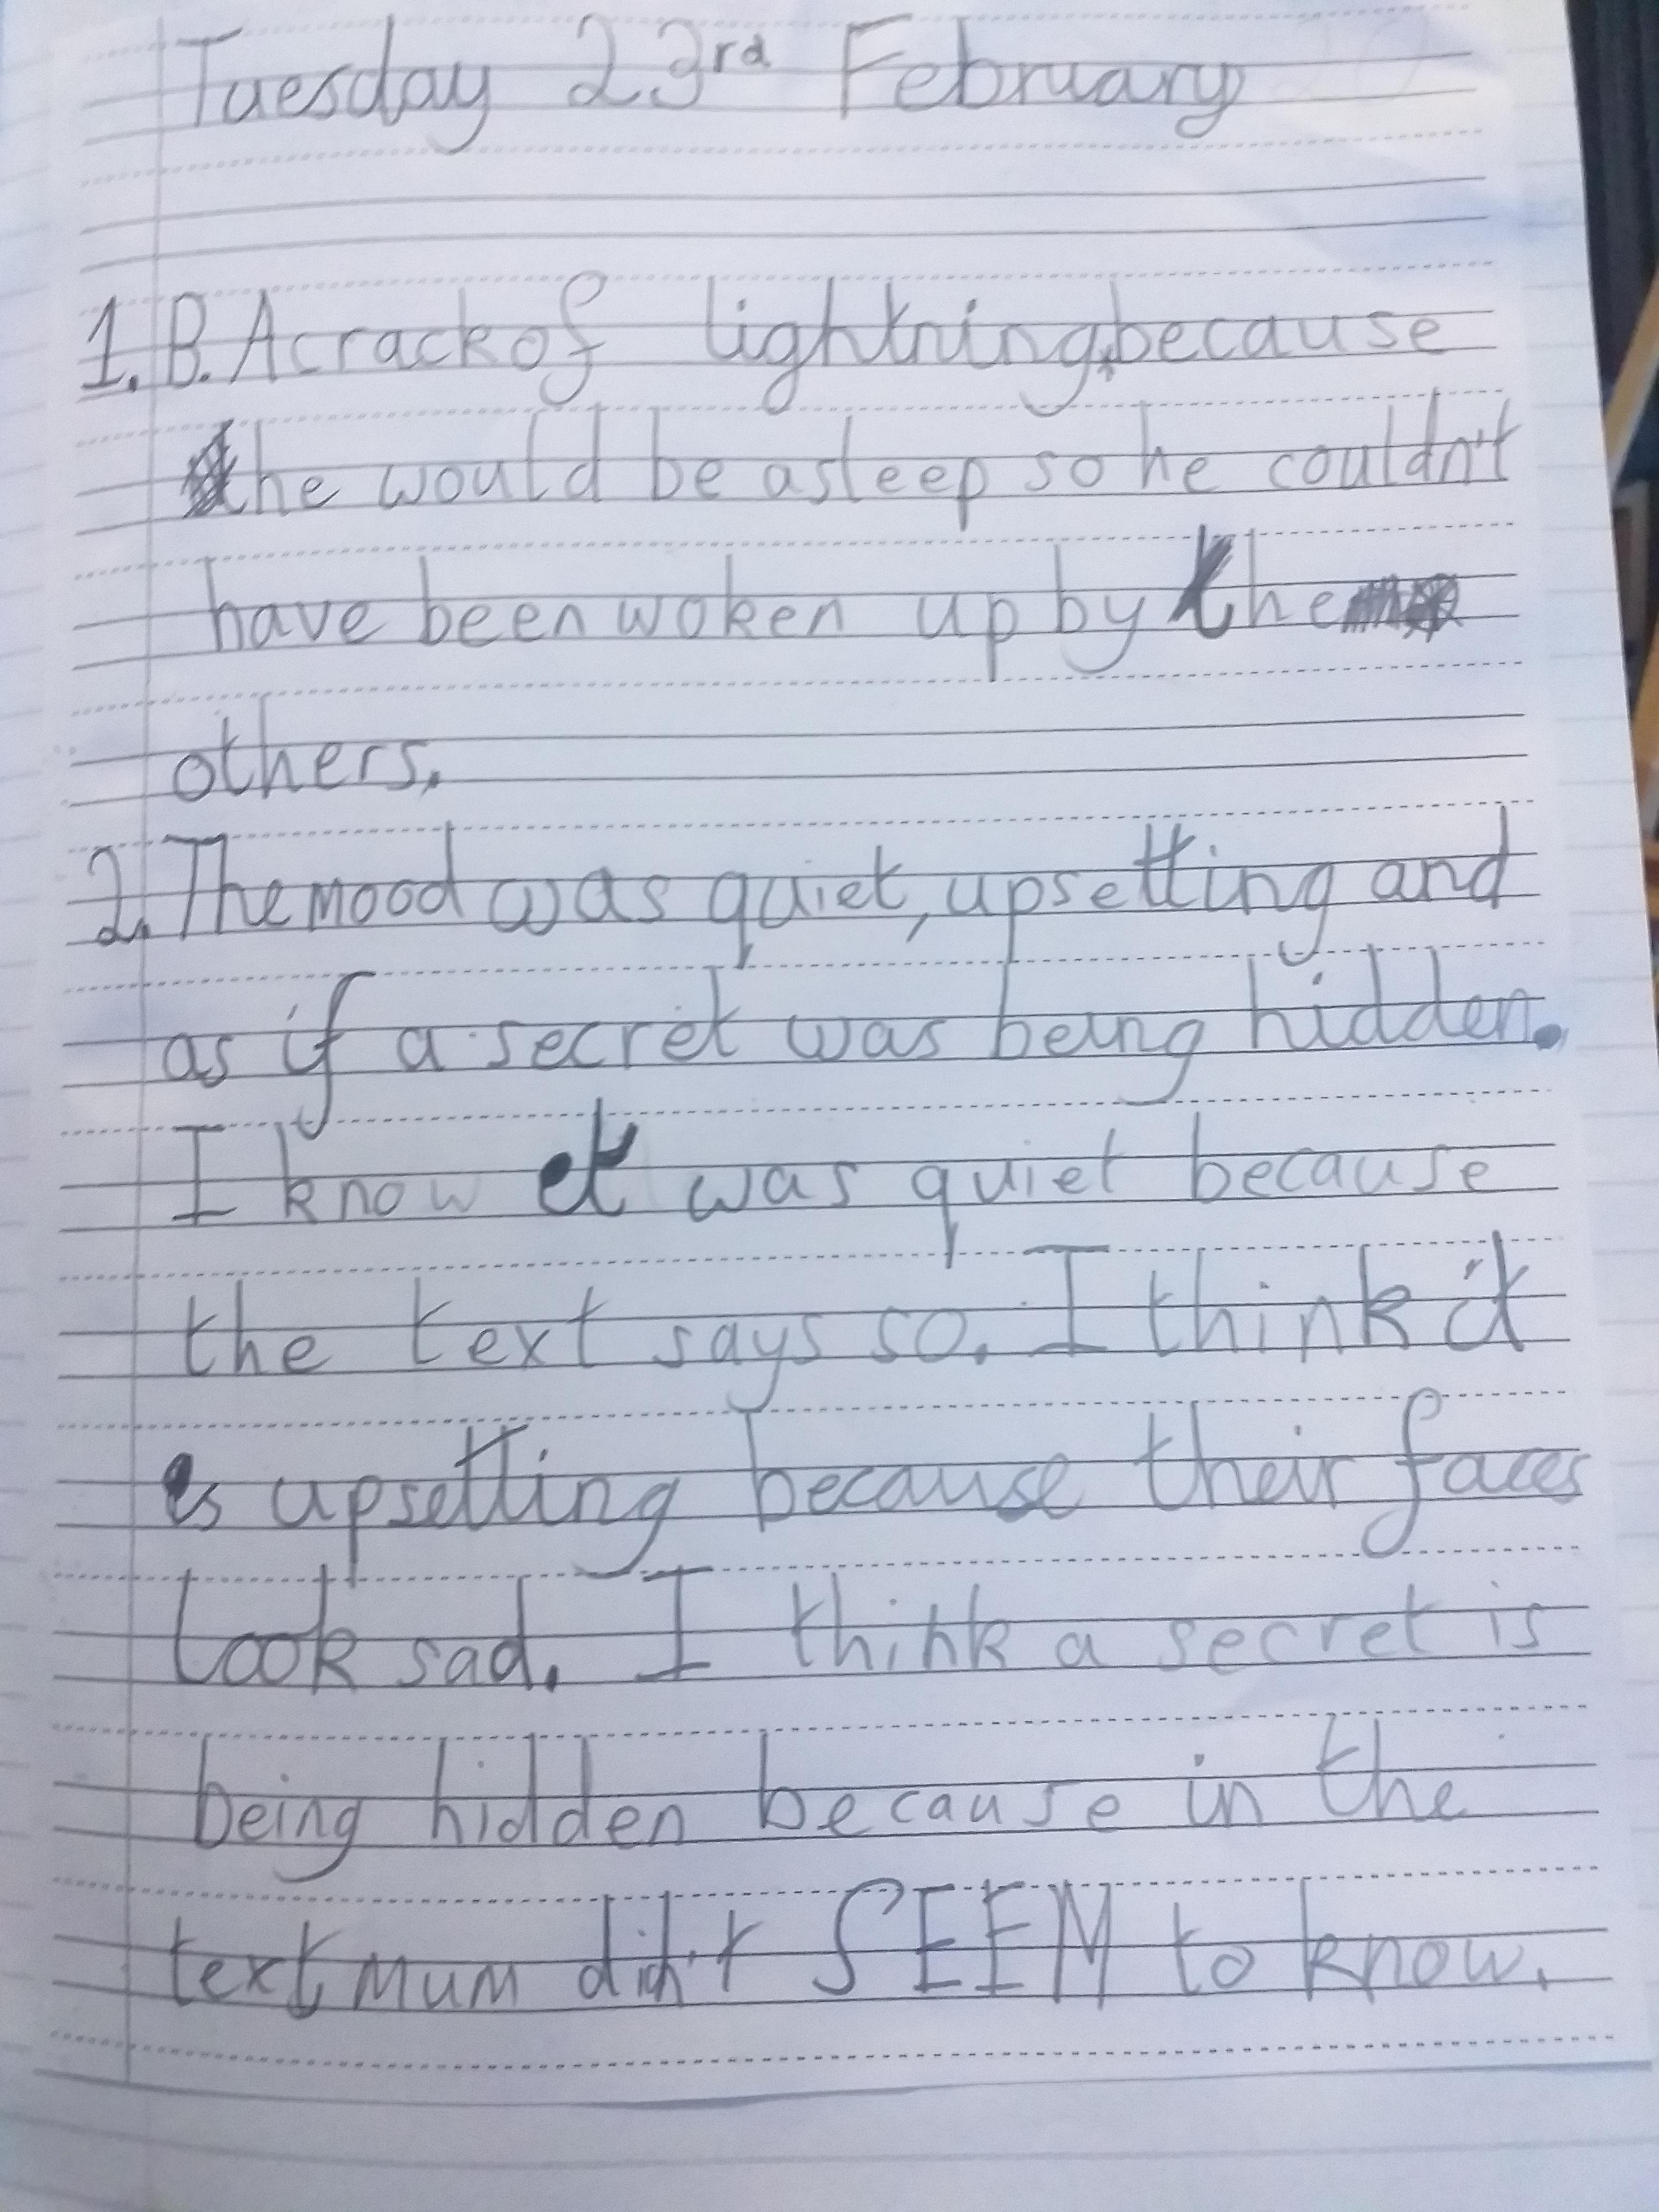 Tuesday 23rd February
1. B. A crack of lightning, because
he would be asleep so he couldn't
have been woken up by the
others.
2. The mood was quiet, upsetting and
as if a secret was being hidden.
I know it was quiet because
the text says so. I think it
is upsetting because their faces
look sad. I think a secret is
being hidden because in the
text, Mum didn't SEEM to know.